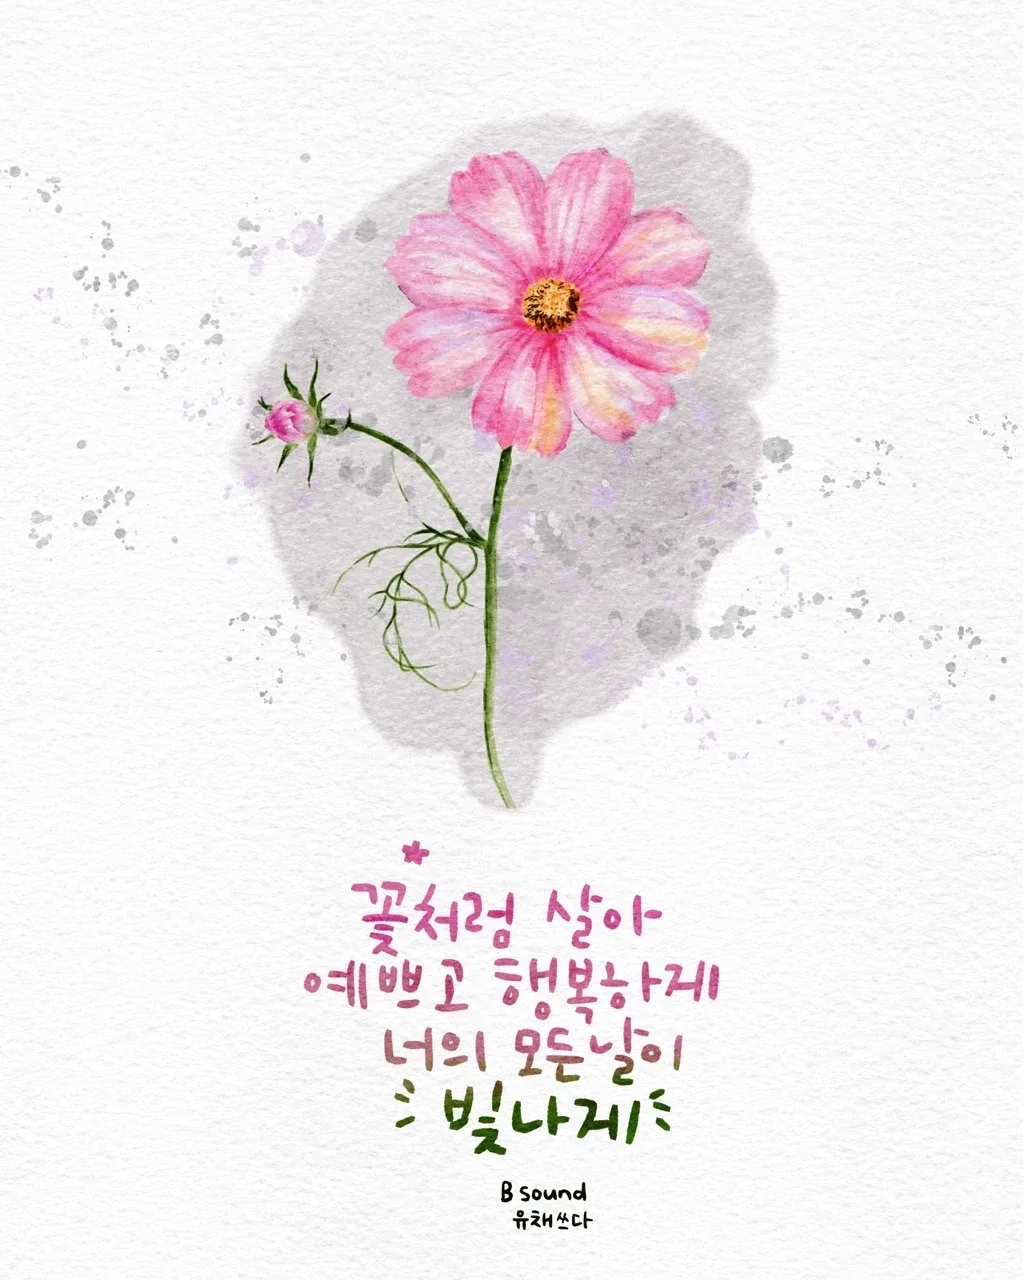 꽃처럼 살아
예쁘고 행복하게
너의 모든날이
빛나게
B sound
유채쓰다